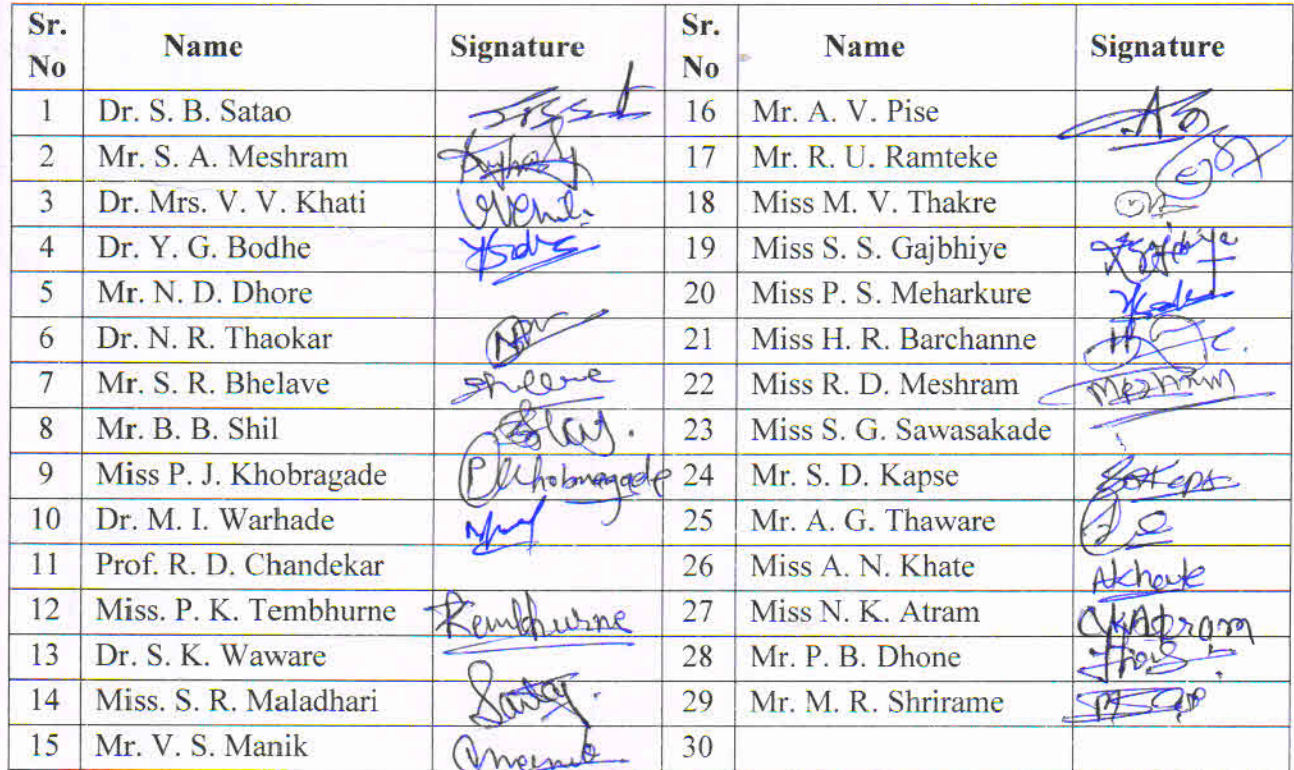 Sr. No Name Signature Sr. No Name Signature
1 Dr. S. B. Satao 16 Mr. A. V. Pise
2 Mr. S. A. Meshram 17 Mr. R. U. Ramteke
3 Dr. Mrs. V. V. Khati 18 Miss M. V. Thakre
4 Dr. Y. G. Bodhe 19 Miss S. S. Gajbhiye
5 Mr. N. D. Dhore 20 Miss P. S. Meharkure
6 Dr. N. R. Thaokar 21 Miss H. R. Barchanne
7 Mr. S. R. Bhelave 22 Miss R. D. Meshram Meshram
8 Mr. B. B. Shil 23 Miss S. G. Sawasakade
9 Miss P. J. Khobragade PKhobragade 24 Mr. S. D. Kapse
10 Dr. M. I. Warhade 25 Mr. A. G. Thaware
11 Prof. R. D. Chandekar 26 Miss A. N. Khate
12 Miss. P. K. Tembhurne 27 Miss N. K. Atram
13 Dr. S. K. Waware 28 Mr. P. B. Dhone
14 Miss. S. R. Maladhari 29 Mr. M. R. Shrirame
15 Mr. V. S. Manik 30